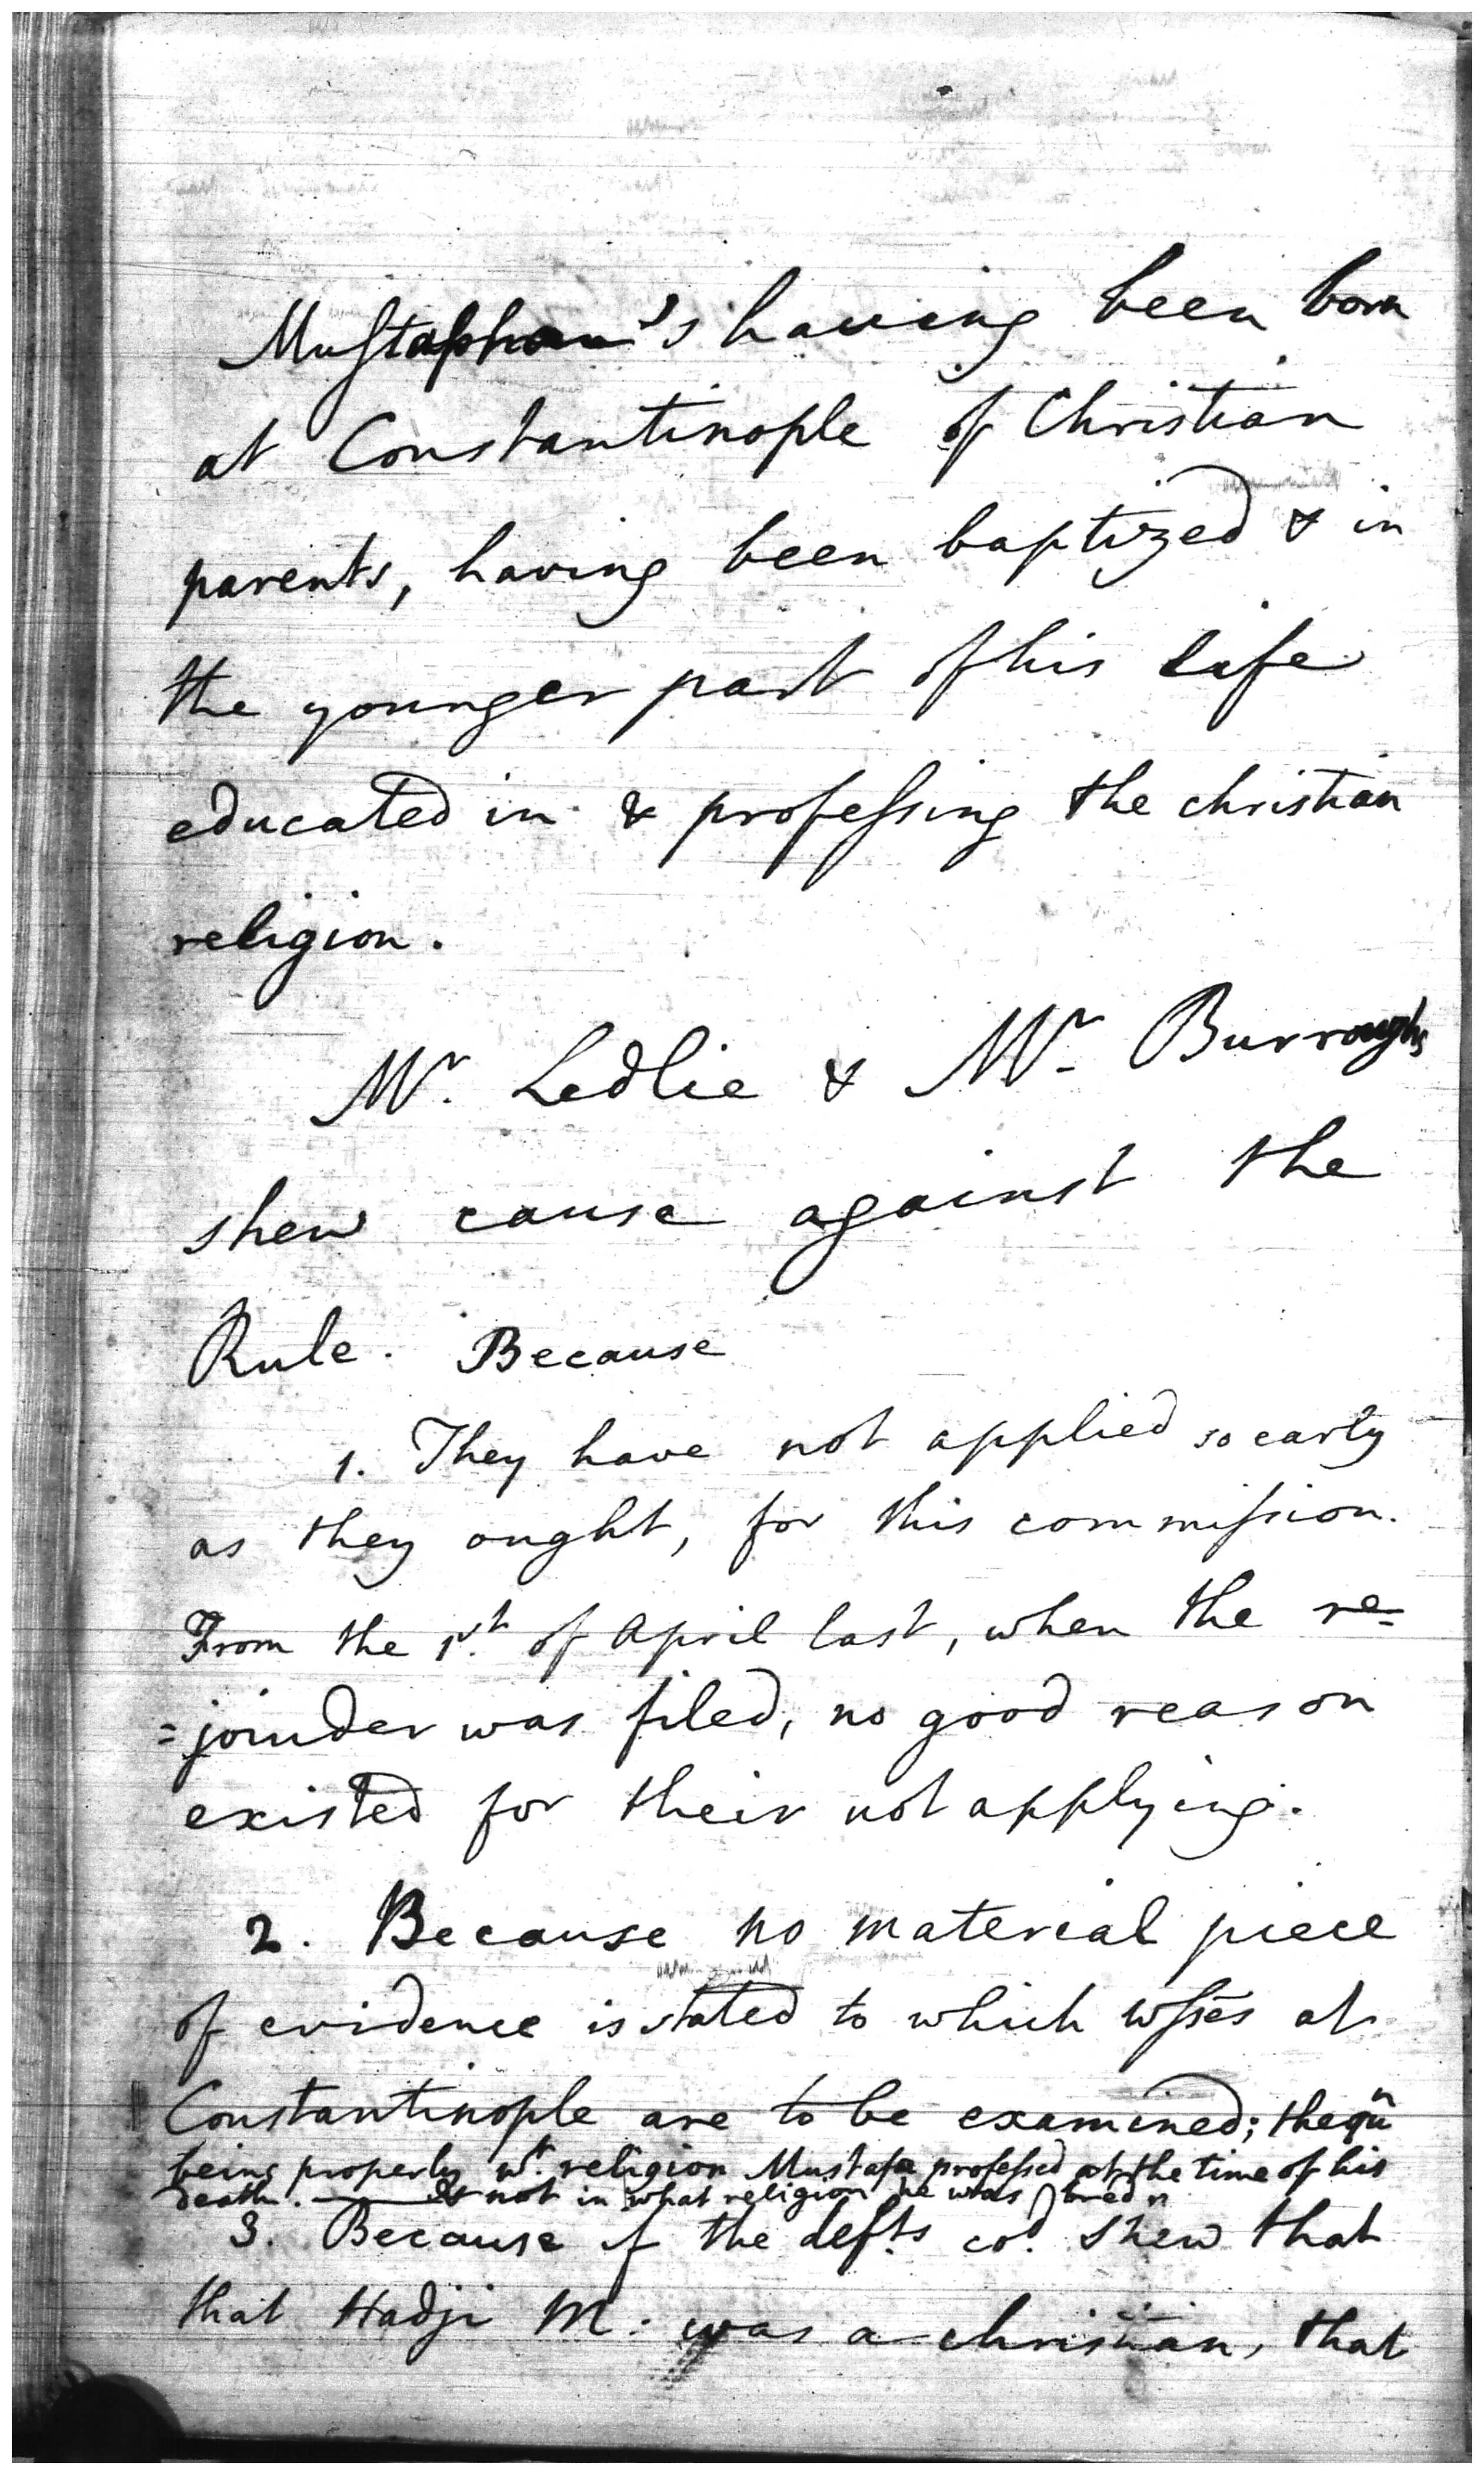 Mustapha's having been born
at Constantinople of Christian
parents, having been baptized & in
the younger part of his life
educated in & professing the christian
religion.
Mr. Ledlie & Mr. Burroughs
shew cause against the
Rule. Because
1. They have not applied so early
as they ought, for this commission.
From the 1st. of April last, when the re=
=joinder was filed, no good reason
existed for their not applying.
2. Because no material piece
of evidence is stated to which wsses at
Constantinople are to be examined; the qn
being properly wt. religion Mustafa professed at the time of his
death. — & not in what religion he was bred.
3. Because if the defts. cod. shew that
that Hadji M: was a christian, that